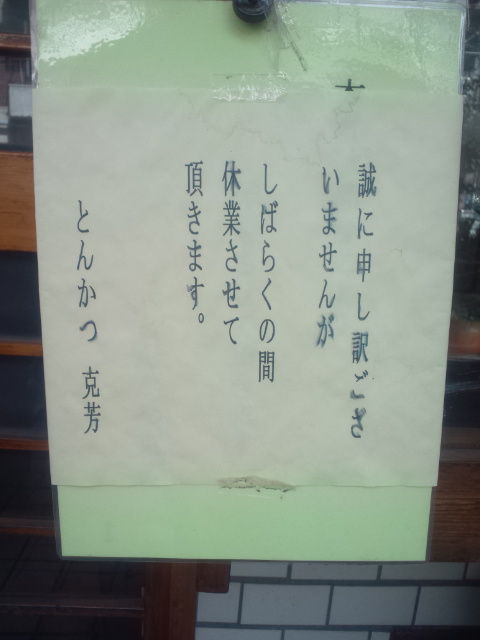 誠に申し訳ござ
いませんが
しばらくの間
休業させて
頂きます。
とんかつ 克芳